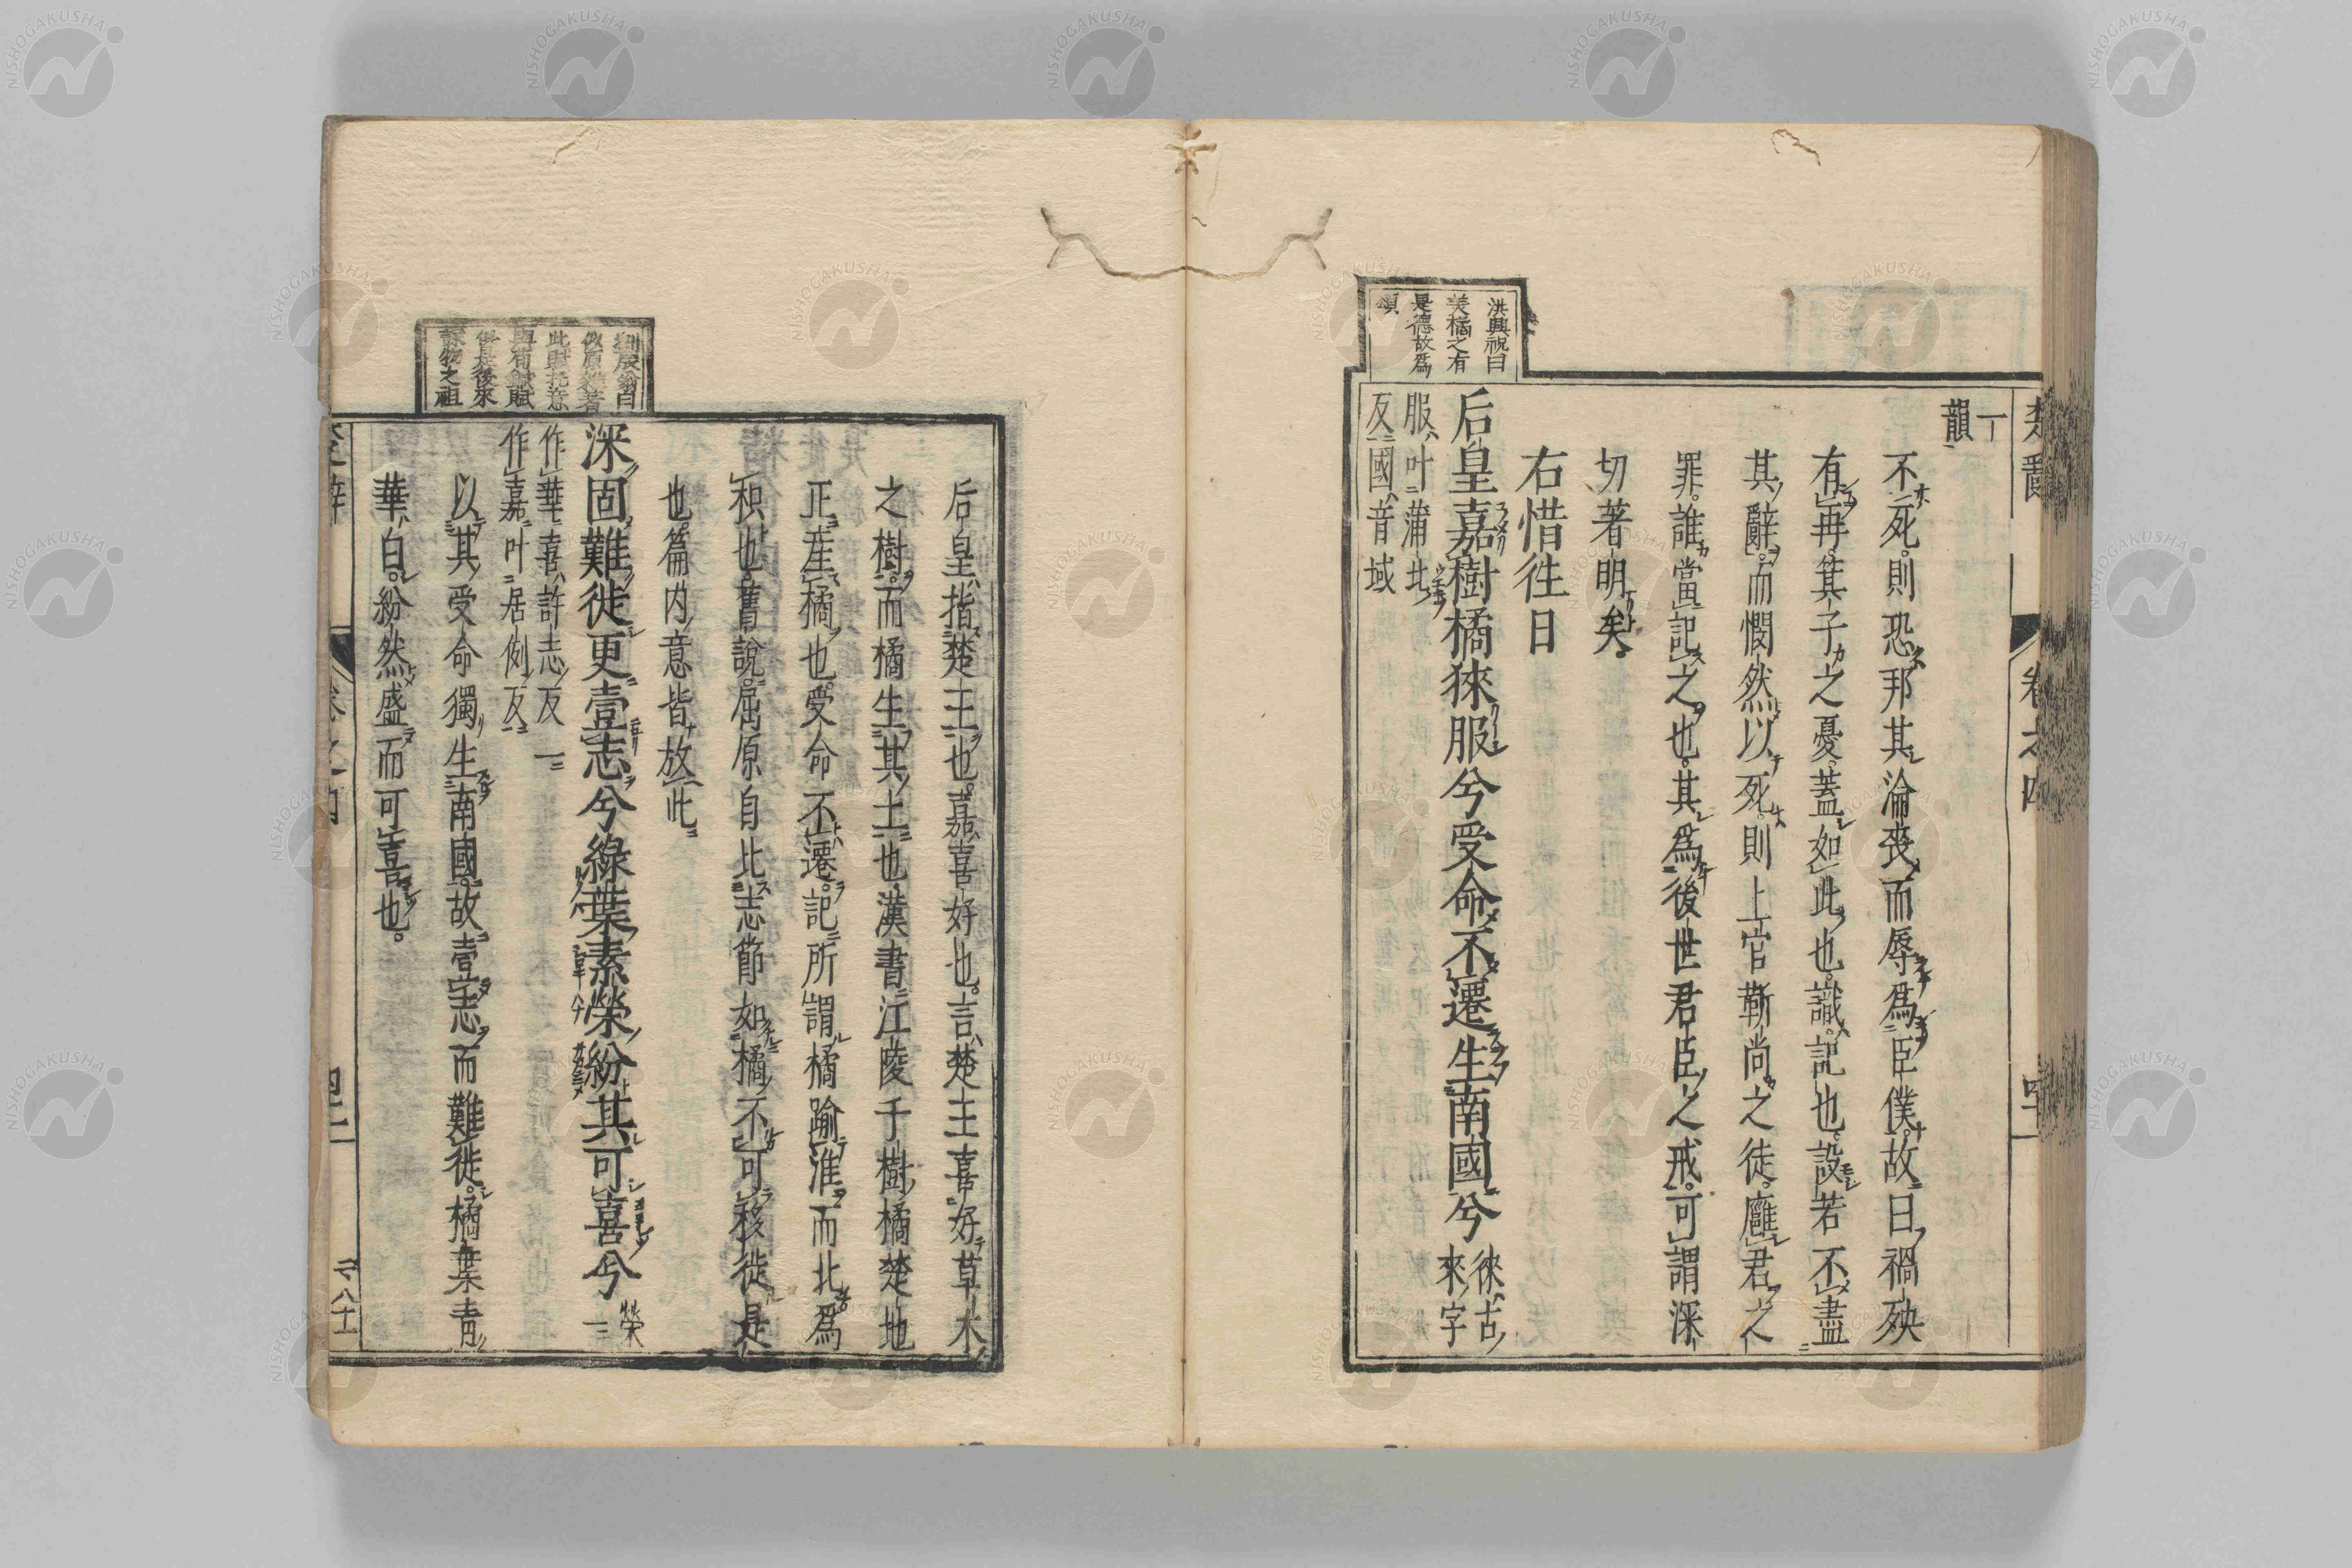 楚辭 卷之四
一
韻
不死則恐邦其淪喪而辱爲臣僕故曰禍殃
有再箕子之憂蓋如此也識記也設若不盡
其辭而憫然以死則上官靳尚之徒廱君之
罪誰當記之也其爲後世君臣之戒可謂深
切著明矣
右惜徃日
洪興祝曰
美橘之有
是德故爲
頌
后皇嘉樹橘徠服兮受命不遷生南國兮
徠古
來字
服叶蒲北
反國音域
后皇指楚王也嘉喜好也言楚王喜好草木
之樹而橘生其土也漢書江陵千樹橘楚地
正産橘也受命不遷記所謂橘踰淮而北爲
枳也舊說屈原自比志節如橘不可移徙是
也篇内意皆放此
劉辰翁曰
似原雜著
此賦托意
與荀賦
後來
詠物之祖
深固難徙更壹志兮綠葉素榮紛其可喜兮
榮一
作華喜許志反一
作嘉叶居例反
以其受命獨生南國故壹志而難徙橘葉青
華白紛然盛而可喜也
楚辭 卷之四
NISHOGAKUSHA